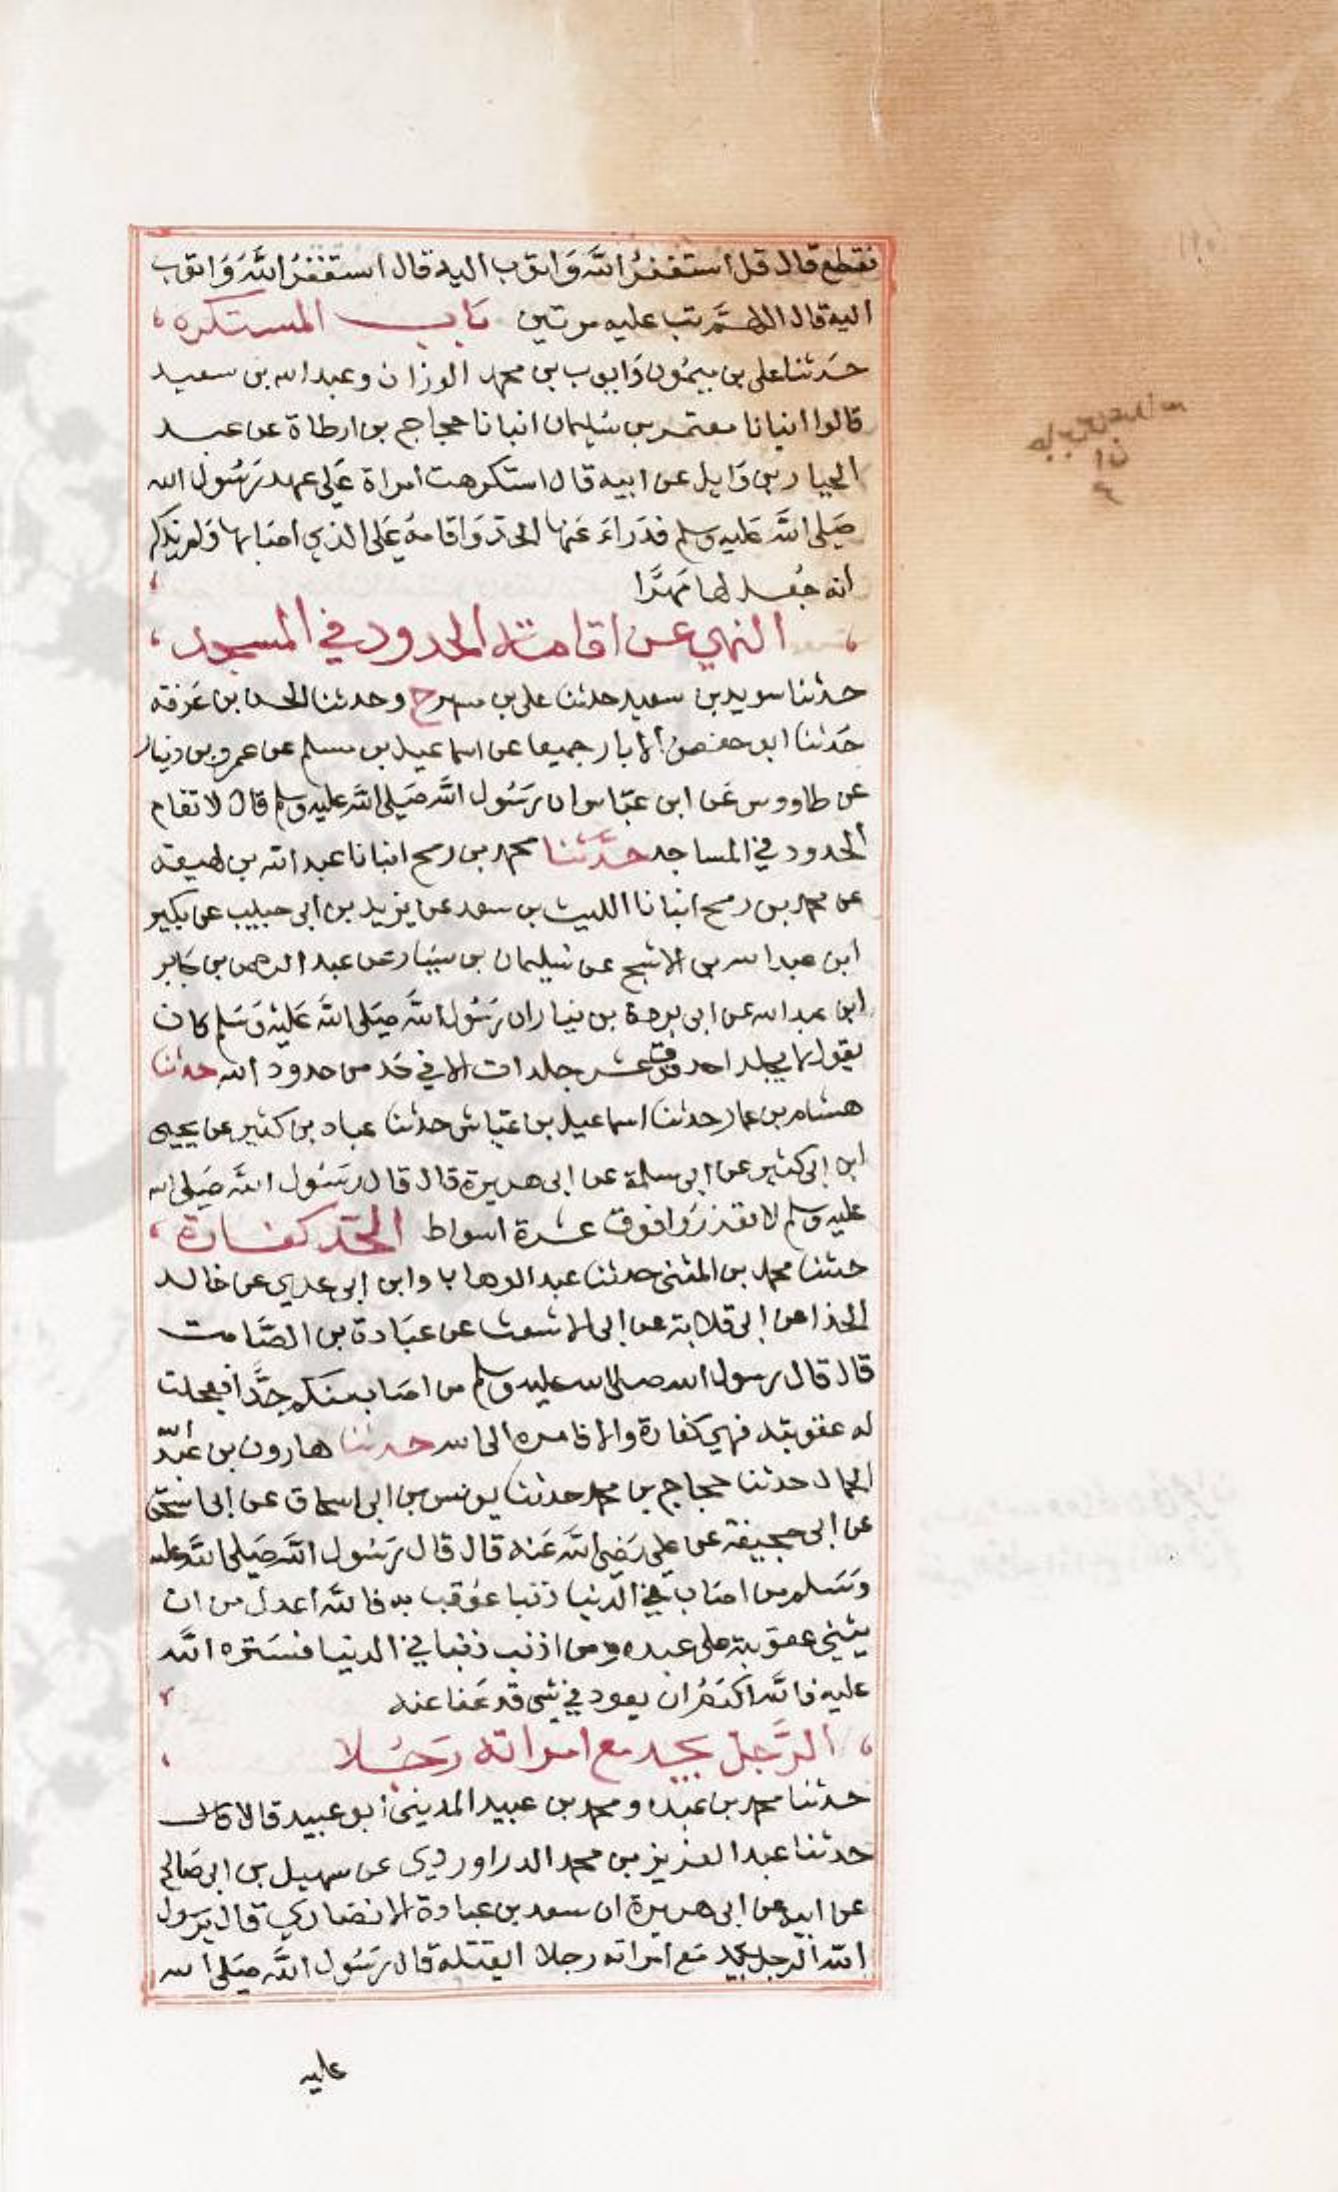 فقطع قال قل استغفرُ اللَّه وَاتوب اليه قال استغفرُ اللَّهَ وَاتوب
اليه قال اللهمَّ تب عليه مرتين بَاب المستكره
حَدثنا على بن ميمُون وَايوب بن محمد الوزان وعبدالله بن سعيد
قالوا انبانا معتمر بن سُليمان انبانا حجاج بن ارطاة عن عبد
الجبار بن وَايل عن ابيه قال استكرهت امراة عَلى عهد رَسُول الله
صَلى اللَّه عَليه وسلم فدَراءَ عَنها الحدّ وَاقامهُ عَلى الذي اصَابها وَلم يذكر
انه جُعل لها مَهرًا
النهي عن اقامة الحدود في المسجد
حدثنا سويد بن سعيد حدثنا على بن مسهر ح وحدثنا الحسن بن عَرفة
حَدثنا ابو حفص الابار جميعا عن اسماعيل بن مسلم عن عمرو بن دينار
عن طاووس عَن ابن عبّاس ان رَسُول اللَّه صَلى اللَّه عليه وسلم قال لا تقام
الحدود في المساجد حدَّثنا محمد بن رمح انبانا عبد الله بن لهيعة
عن محمد بن رمح انبانا الليث بن سعد عن يزيد بن ابى حبيب عن بكير
ابن عبدالله بن الاشج عن سُليمان بن يسَار عَن عبد الرحمن بن جَابر
ابن عبدالله عن ابى بردة بن نيار ان رَسُول اللَّه صَلى اللَّه عَليْه وَسَلم كان
يقول لا يجلد احد فوق عشر جلدات الا في حَد من حدود الله حدثنا
هشام بن عمار حدثنا اسماعيل بن عيّاش حدثنا عباد بن كثير عن يحيى
ابن ابى كثير عن ابى سلمة عن ابى هريرة قال قال رسَُول اللَّه صَلى الله
عليه وسلم لا تعزرُوا فوق عشرة اسواط الحدّ كفارة
حدثنا محمد بن المثنى حدثنا عبد الوهاب وابن ابى عدي عن خالد
الحذا عن ابى قلابة عن ابى الاشعث عن عبَادة بن الصَّامت
قال قال رسول الله صلى الله عليه وسلم من اصَاب منكم حَدًّا فعجلت
له عقوبته فهي كفارة والا فامره الى الله حدثنا هارون بن عَبد اللّه
الحمال حدثنا حجاج بن محمد حدثنا يونس بن ابى اسحاق عن ابى اسحق
عن ابى جحيفة عن على رَضي اللَّه عَنه قال قال رَسُول اللَّه صَلى اللَّه عليه
وَسَلم من اصَاب في الدنيا ذنبا عوُقب به فاللَّه أعدل من ان
يثني عقوبته على عبده ومن اذنب ذنبا في الدنيا فسَتره اللَّه
عليه فاللَّه اكَرَمُ ان يعود في شى قد عَفا عنه
الرَّجل يجد مع امراته رَجُلا
حدثنا محمد بن عَبده ومحمد بن عبيد المديني أبو عبيد قالا قال
حدثنا عبد العزيز بن محمد الدراوردي عن سهيل بن ابى صَالح
عن ابيه عن ابى هريرة ان سعد بن عبادة الانصَاري قال يرَسول
اللَّه الرجل يجد مَع امراته رجلا ايقتله قال رَسُول اللَّه صَلى الله
عليه